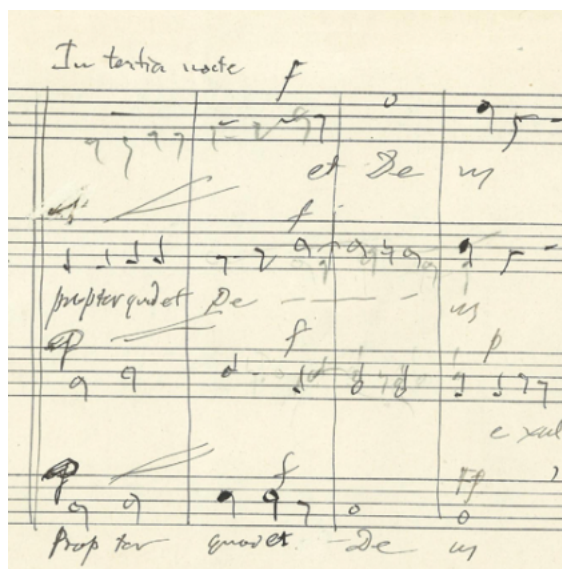 In tertia nocte
f
et De us
f
propter quod et De - - - - us
p f p
exul
p f
Prop ter quod et - De us